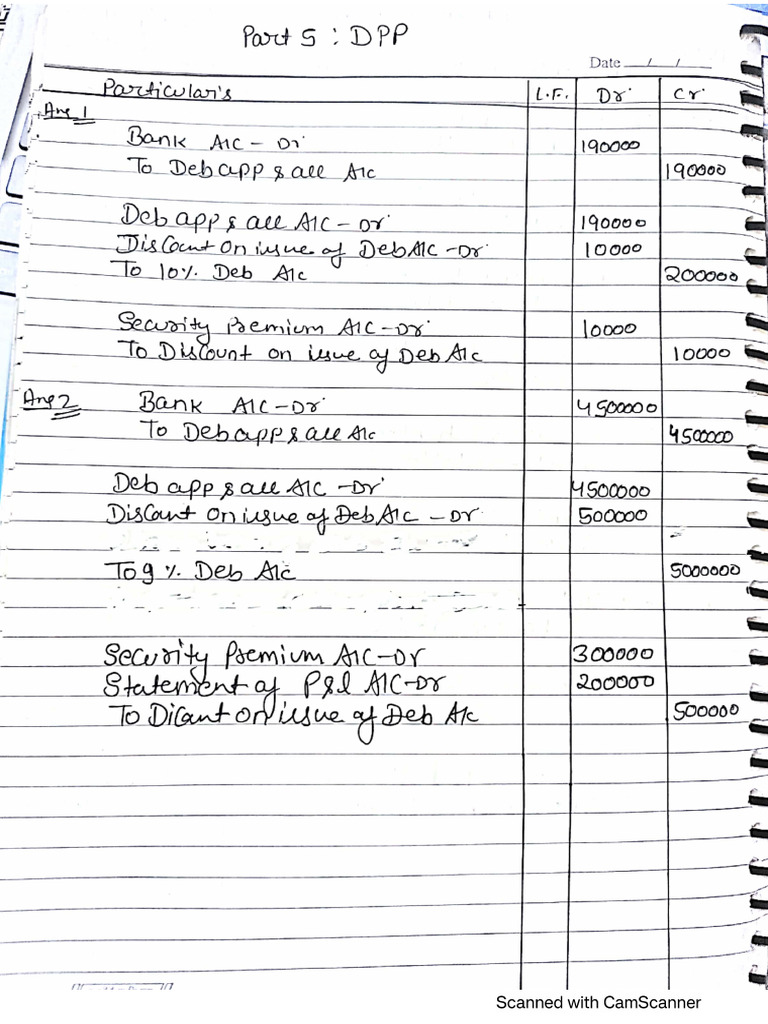 Part 5 : DPP
Date __/__/__
Particular's L.F. Dr. Cr.
Ans 1
Bank A/C - Dr 190000
To Deb app & all A/c 190000
Deb app & all A/C - Dr 190000
Discount on issue of Deb A/C - Dr 10000
To 10% Deb A/c 200000
Security Premium A/C - Dr 10000
To Discount on issue of Deb A/c 10000
Ans 2 Bank A/C - Dr 4500000
To Deb app & all A/c 4500000
Deb app & all A/C - Dr 4500000
Discount on issue of Deb A/C - Dr 500000
To 9 % Deb A/c 5000000
Security Premium A/C - Dr 300000
Statement of P&l A/C - Dr 200000
To Dicount on issue of Deb A/c 500000
Scanned with CamScanner